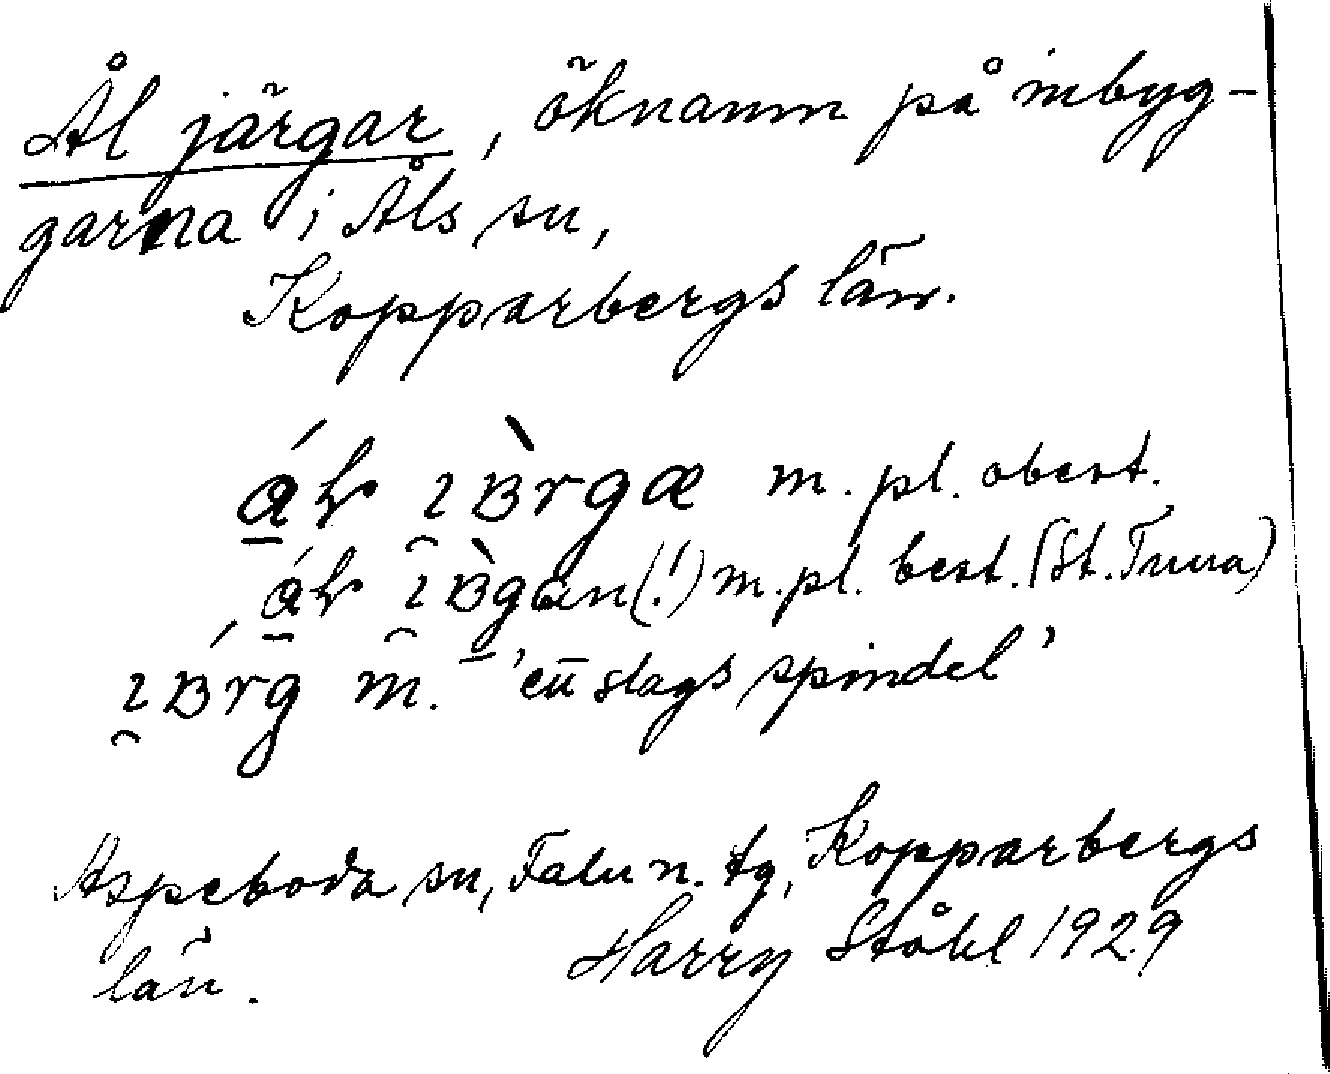 Åljärgar, öknamn på inbyg-
garna i Åls sn,
Kopparbergs län.
m. pl. obest.
(!) m. pl. best. (St. Tuna)
m. 'ett slags spindel'
Aspeboda sn, Falu n. tg, Kopparbergs
län. Harry Ståhl 1929